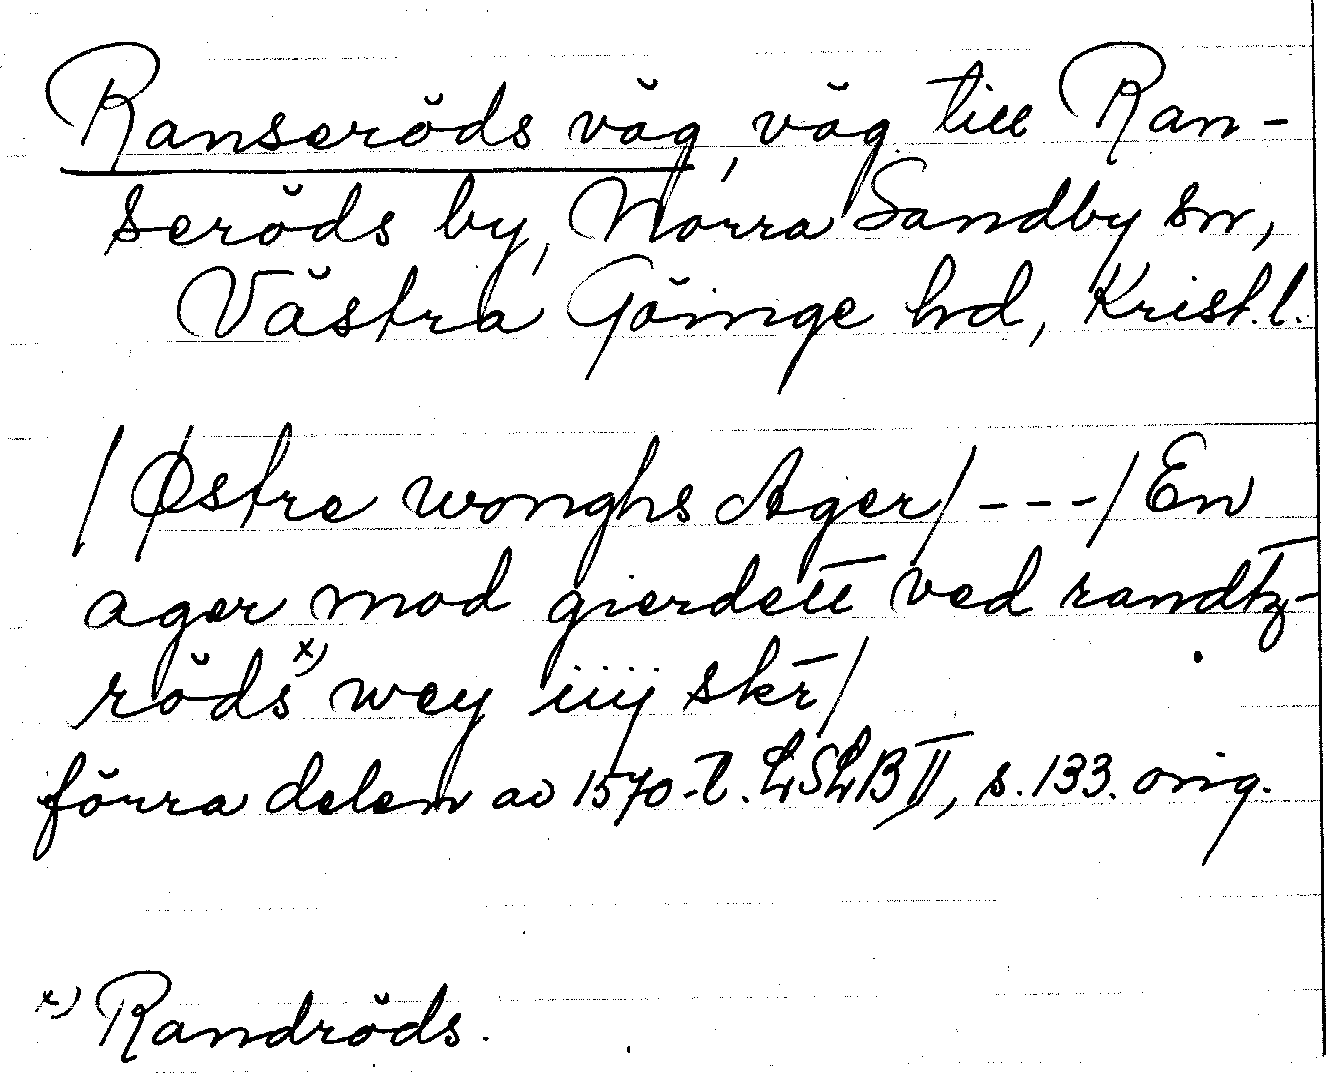 Ranseröds väg, väg till Ran-
seröds by, Norra Sandby sn,
Västra Göinge hd, Krist.l.
/Østre wonghs Ager/ - - - /En
ager mod gierdett ved randtz-
röds x) wey iiij skr/
förra delen av 1570-t. LSLB II, s. 133. orig.
x) Randröds.